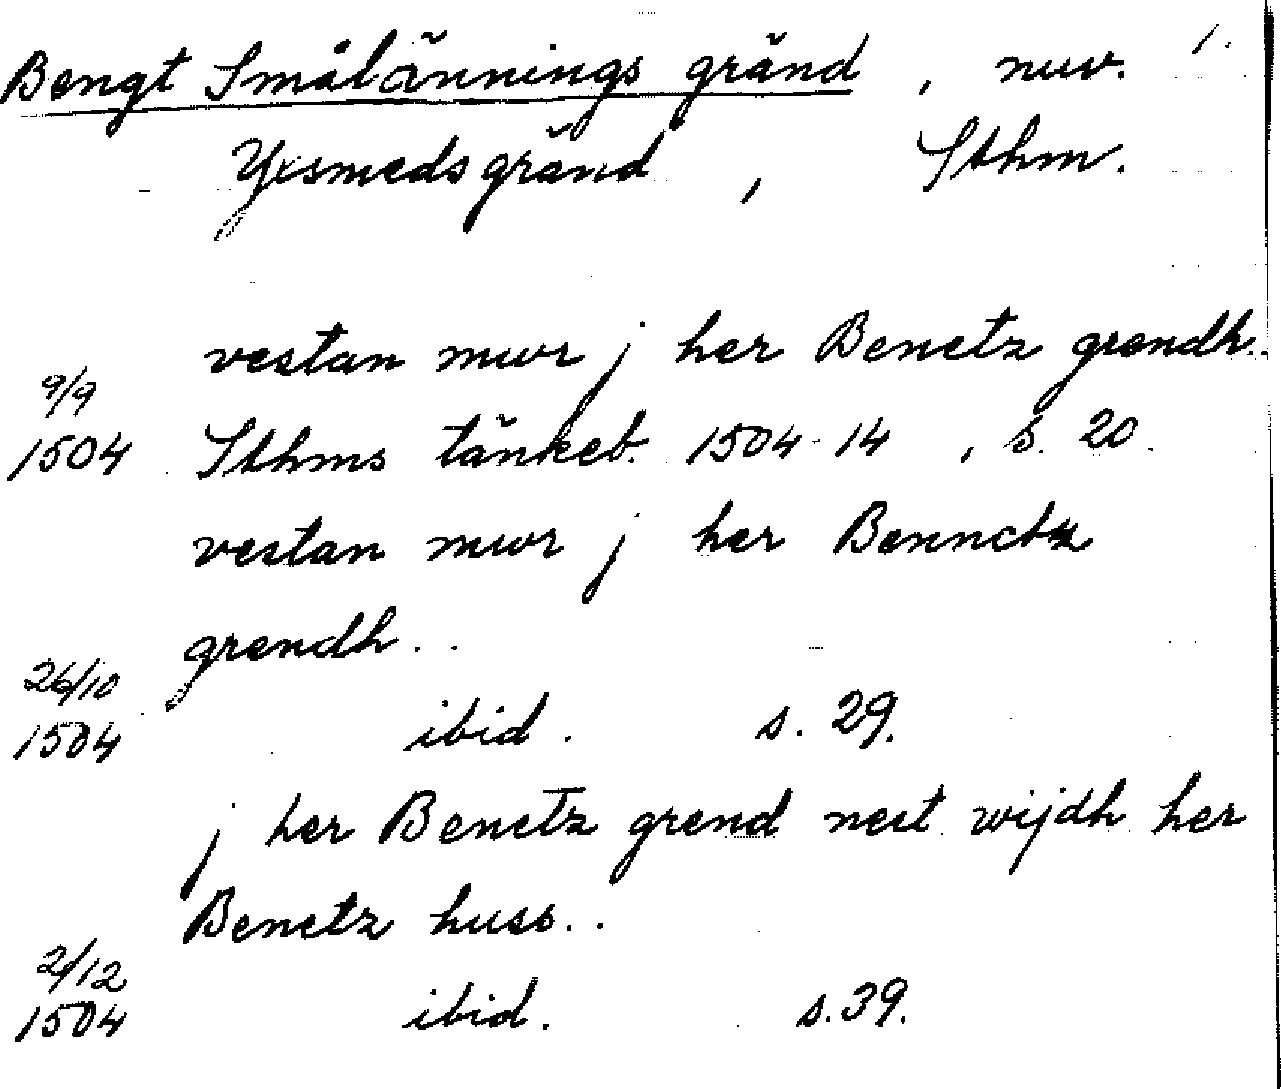 Bengt Smålännings gränd, nuv. 1.
Yxsmedsgränd, Sthm.
vestan mwr j her Benetz grendh..
9/9
1504 Sthms tänkeb. 1504-14, s. 20.
vestan mwr j her Bennetz
grendh..
26/10
1504 ibid. s. 29.
j her Benetz grend nest wijdh her
Benetz huss..
2/12
1504 ibid. s. 39.